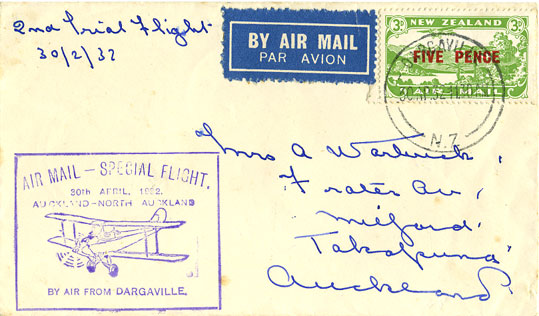 2nd Trial Flight
30/2/32
BY AIR MAIL
PAR AVION
3D NEW ZEALAND 3D
FIVE PENCE
AIR MAIL
DARGAVILLE
30 AP 32
N.Z.
Mrs A Warbrick,
Frater Av,
Milford
Takapuna
Auckland
AIR MAIL – SPECIAL FLIGHT.
30TH APRIL, 1932.
AUCKLAND–NORTH AUCKLAND
BY AIR FROM DARGAVILLE.